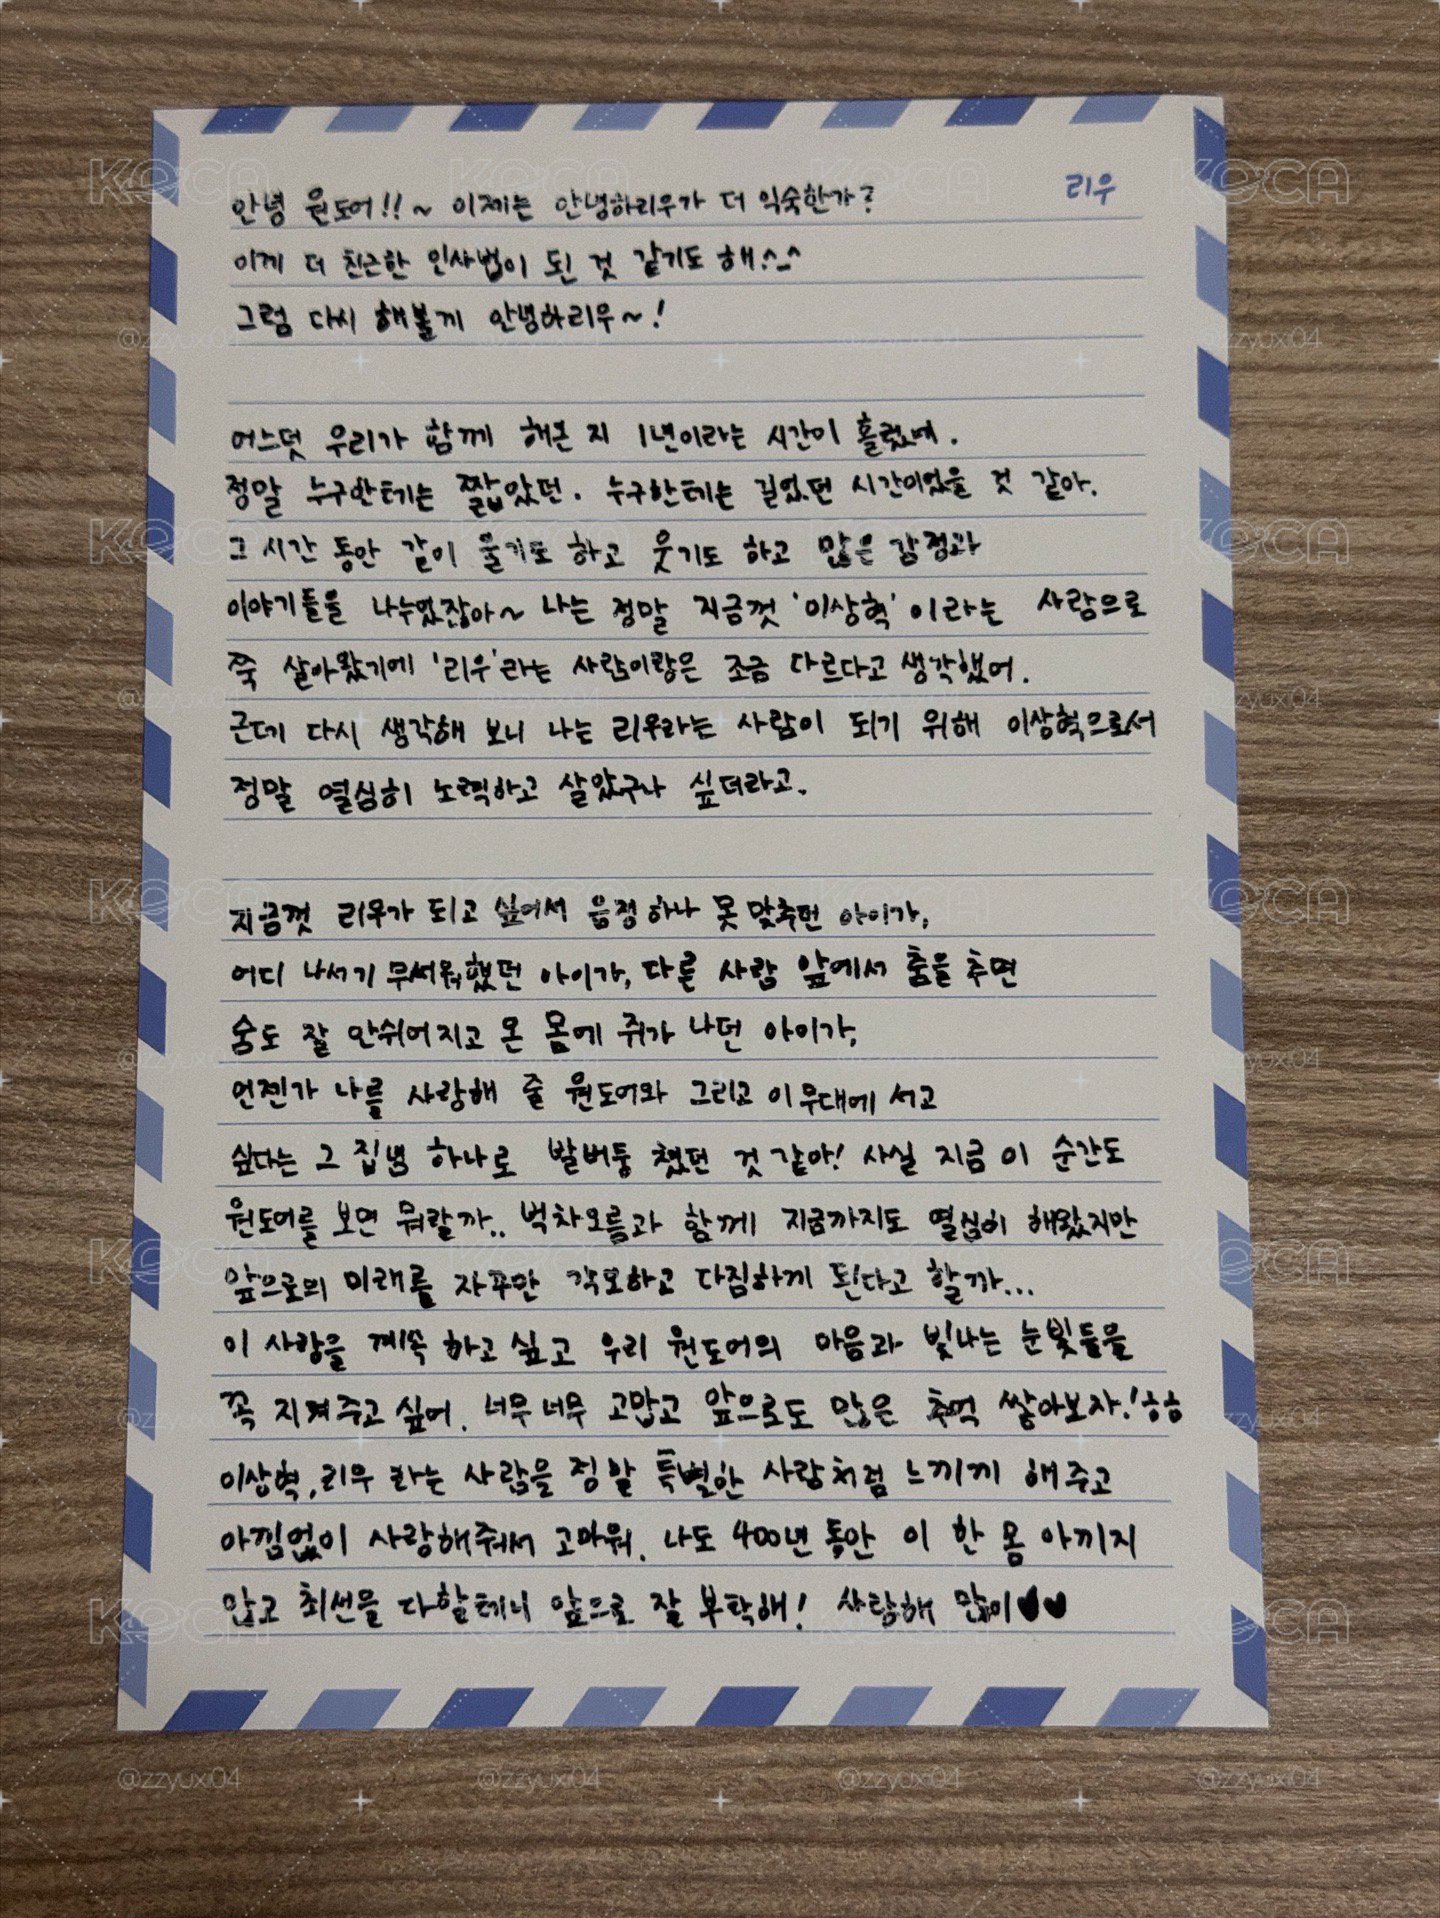 리우
안녕 원도어!! ~ 이제는 안녕하리우가 더 익숙한가?
이게 더 친근한 인사법이 된 것 같기도 해.^_^
그럼 다시 해볼게 안녕하리우~!
어느덧 우리가 함께 해온 지 1년이라는 시간이 흘렀네.
정말 누구한테는 짧았던. 누구한테는 길었던 시간이었을 것 같아.
그 시간 동안 같이 울기도 하고 웃기도 하고 많은 감정과
이야기들을 나누었잖아~ 나는 정말 지금껏 '이상혁'이라는 사람으로
쭉 살아왔기에 '리우'라는 사람이랑은 조금 다르다고 생각했어.
근데 다시 생각해 보니 나는 리우라는 사람이 되기 위해 이상혁으로서
정말 열심히 노력하고 살았구나 싶더라고.
지금껏 리우가 되고 싶어서 음정 하나 못 맞추던 아이가,
어디 나서기 무서워했던 아이가, 다른 사람 앞에서 춤을 추면
숨도 잘 안쉬어지고 온 몸에 쥐가 나던 아이가,
언젠가 나를 사랑해 줄 원도어와 그리고 이 무대에 서고
싶다는 그 집념 하나로 발버둥 쳤던 것 같아! 사실 지금 이 순간도
원도어를 보면 뭐랄까.. 벅차오름과 함께 지금까지도 열심히 해왔지만
앞으로의 미래를 자꾸만 각오하고 다짐하게 된다고 할까...
이 사랑을 계속 하고 싶고 우리 원도어의 마음과 빛나는 눈빛들을
꼭 지켜주고 싶어. 너무너무 고맙고 앞으로도 많은 추억 쌓아보자!ㅎㅎ
이상혁, 리우 라는 사람을 정말 특별한 사람처럼 느끼게 해주고
아낌없이 사랑해줘서 고마워. 나도 400년 동안 이 한 몸 아끼지
않고 최선을 다할테니 앞으로 잘 부탁해! 사랑해 많이♥♥
KOCA
@zzyuxi04